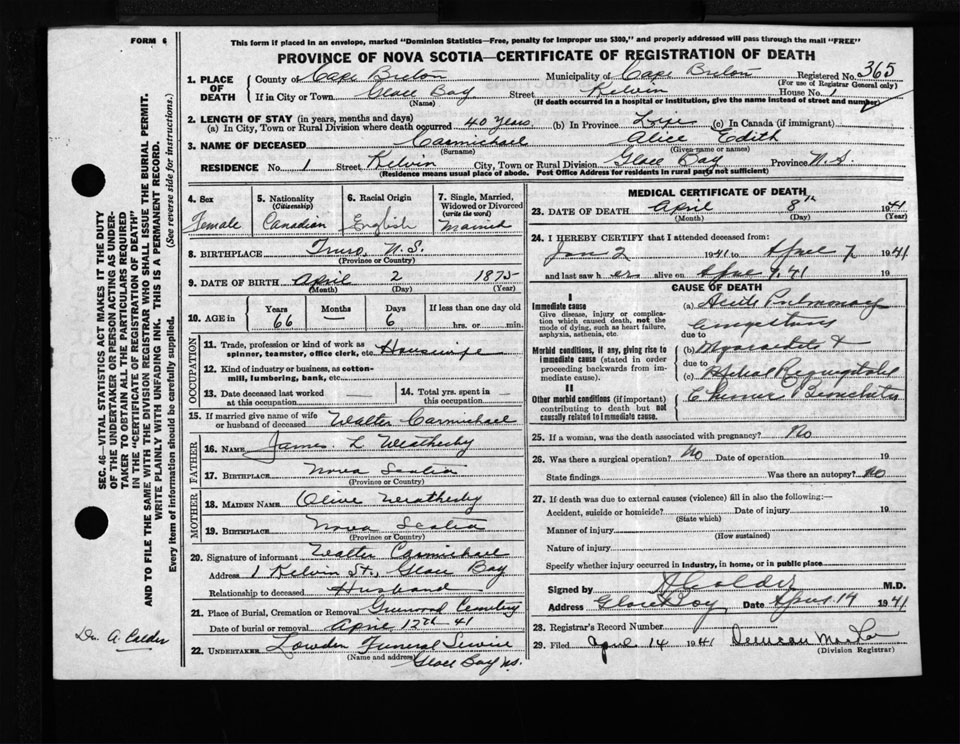 FORM 6
This form if placed in an envelope, marked "Dominion Statistics—Free, penalty for improper use $300," and properly addressed will pass through the mail "FREE"
PROVINCE OF NOVA SCOTIA—CERTIFICATE OF REGISTRATION OF DEATH
1. PLACE OF DEATH County of Cape Breton Municipality of Cape Breton Registered No. 365
(For use of Registrar General only)
If in City or Town Glace Bay Street Kelvin House No. 1
(Name) (If death occurred in a hospital or institution, give the name instead of street and number)
2. LENGTH OF STAY (in years, months and days)
(a) In City, Town or Rural Division where death occurred 40 years (b) In Province Life (c) In Canada (if immigrant)
3. NAME OF DECEASED Carmichael Alice Edith
(Surname) (Given name or names)
RESIDENCE No. 1 Street Kelvin City, Town or Rural Division Glace Bay Province N.S.
(Residence means usual place of abode. Post Office Address for residents in rural parts not sufficient)
4. Sex Female
5. Nationality (Citizenship) Canadian
6. Racial Origin English
7. Single, Married, Widowed or Divorced (write the word) Married
8. BIRTHPLACE Truro, N.S.
(Province or Country)
9. DATE OF BIRTH April 2 1875
(Month) (Day) (Year)
10. AGE in Years 66 Months — Days 6 If less than one day old hrs. or min.
OCCUPATION
11. Trade, profession or kind of work as spinner, teamster, office clerk, etc. Housewife
12. Kind of industry or business, as cotton-mill, lumbering, bank, etc.
13. Date deceased last worked at this occupation —
14. Total yrs. spent in this occupation —
15. If married give name of wife or husband of deceased Walter Carmichael
FATHER
16. Name James L Weatherby
17. Birthplace Nova Scotia
(Province or Country)
MOTHER
18. Maiden Name Olive Weatherby
19. Birthplace Nova Scotia
(Province or Country)
20. Signature of informant Walter Carmichael
Address 1 Kelvin St., Glace Bay
Relationship to deceased Husband
21. Place of Burial, Cremation or Removal Greenwood Cemetery
Date of burial or removal April 12th 41
22. UNDERTAKER Lowden Funeral Service
(Name and address) Glace Bay N.S.
MEDICAL CERTIFICATE OF DEATH
23. DATE OF DEATH April 8th 1941
(Month) (Day) (Year)
24. I HEREBY CERTIFY that I attended deceased from:
Jan 2 1941 to April 7 1941
and last saw her alive on April 7, 41 19
CAUSE OF DEATH
I
Immediate cause
Give disease, injury or complication which caused death, not the mode of dying, such as heart failure, asphyxia, asthenia, etc.
(a) Acute Pulmonary
due to
Morbid conditions, if any, giving rise to immediate cause (stated in order proceeding backwards from immediate cause).
(b) Myocarditis &
due to
(c) Mitral Regurgitation
II
Other morbid conditions (if important) contributing to death but not causally related to immediate cause.
Chronic Bronchitis
25. If a woman, was the death associated with pregnancy? No
26. Was there a surgical operation? No Date of operation 19
State findings Was there an autopsy? No
27. If death was due to external causes (violence) fill in also the following:—
Accident, suicide or homicide? Date of injury 19
(State which)
Manner of injury
(How sustained)
Nature of injury
Specify whether injury occurred in industry, in home, or in public place
Signed by A Calder M.D.
Address Glace Bay Date April 19 1941
28. Registrar's Record Number
29. Filed April 14 1941 Duncan
(Division Registrar)
SEC. 46—VITAL STATISTICS ACT MAKES IT THE DUTY
OF THE UNDERTAKER OR PERSON ACTING AS UNDERTAKER TO OBTAIN ALL THE PARTICULARS REQUIRED
IN THE "CERTIFICATE OF REGISTRATION OF DEATH"
AND TO FILE THE SAME WITH THE DIVISION REGISTRAR WHO SHALL ISSUE THE BURIAL PERMIT.
WRITE PLAINLY WITH UNFADING INK. THIS IS A PERMANENT RECORD.
Every item of information should be carefully supplied. (See reverse side for instructions.)
Dr. A. Calder